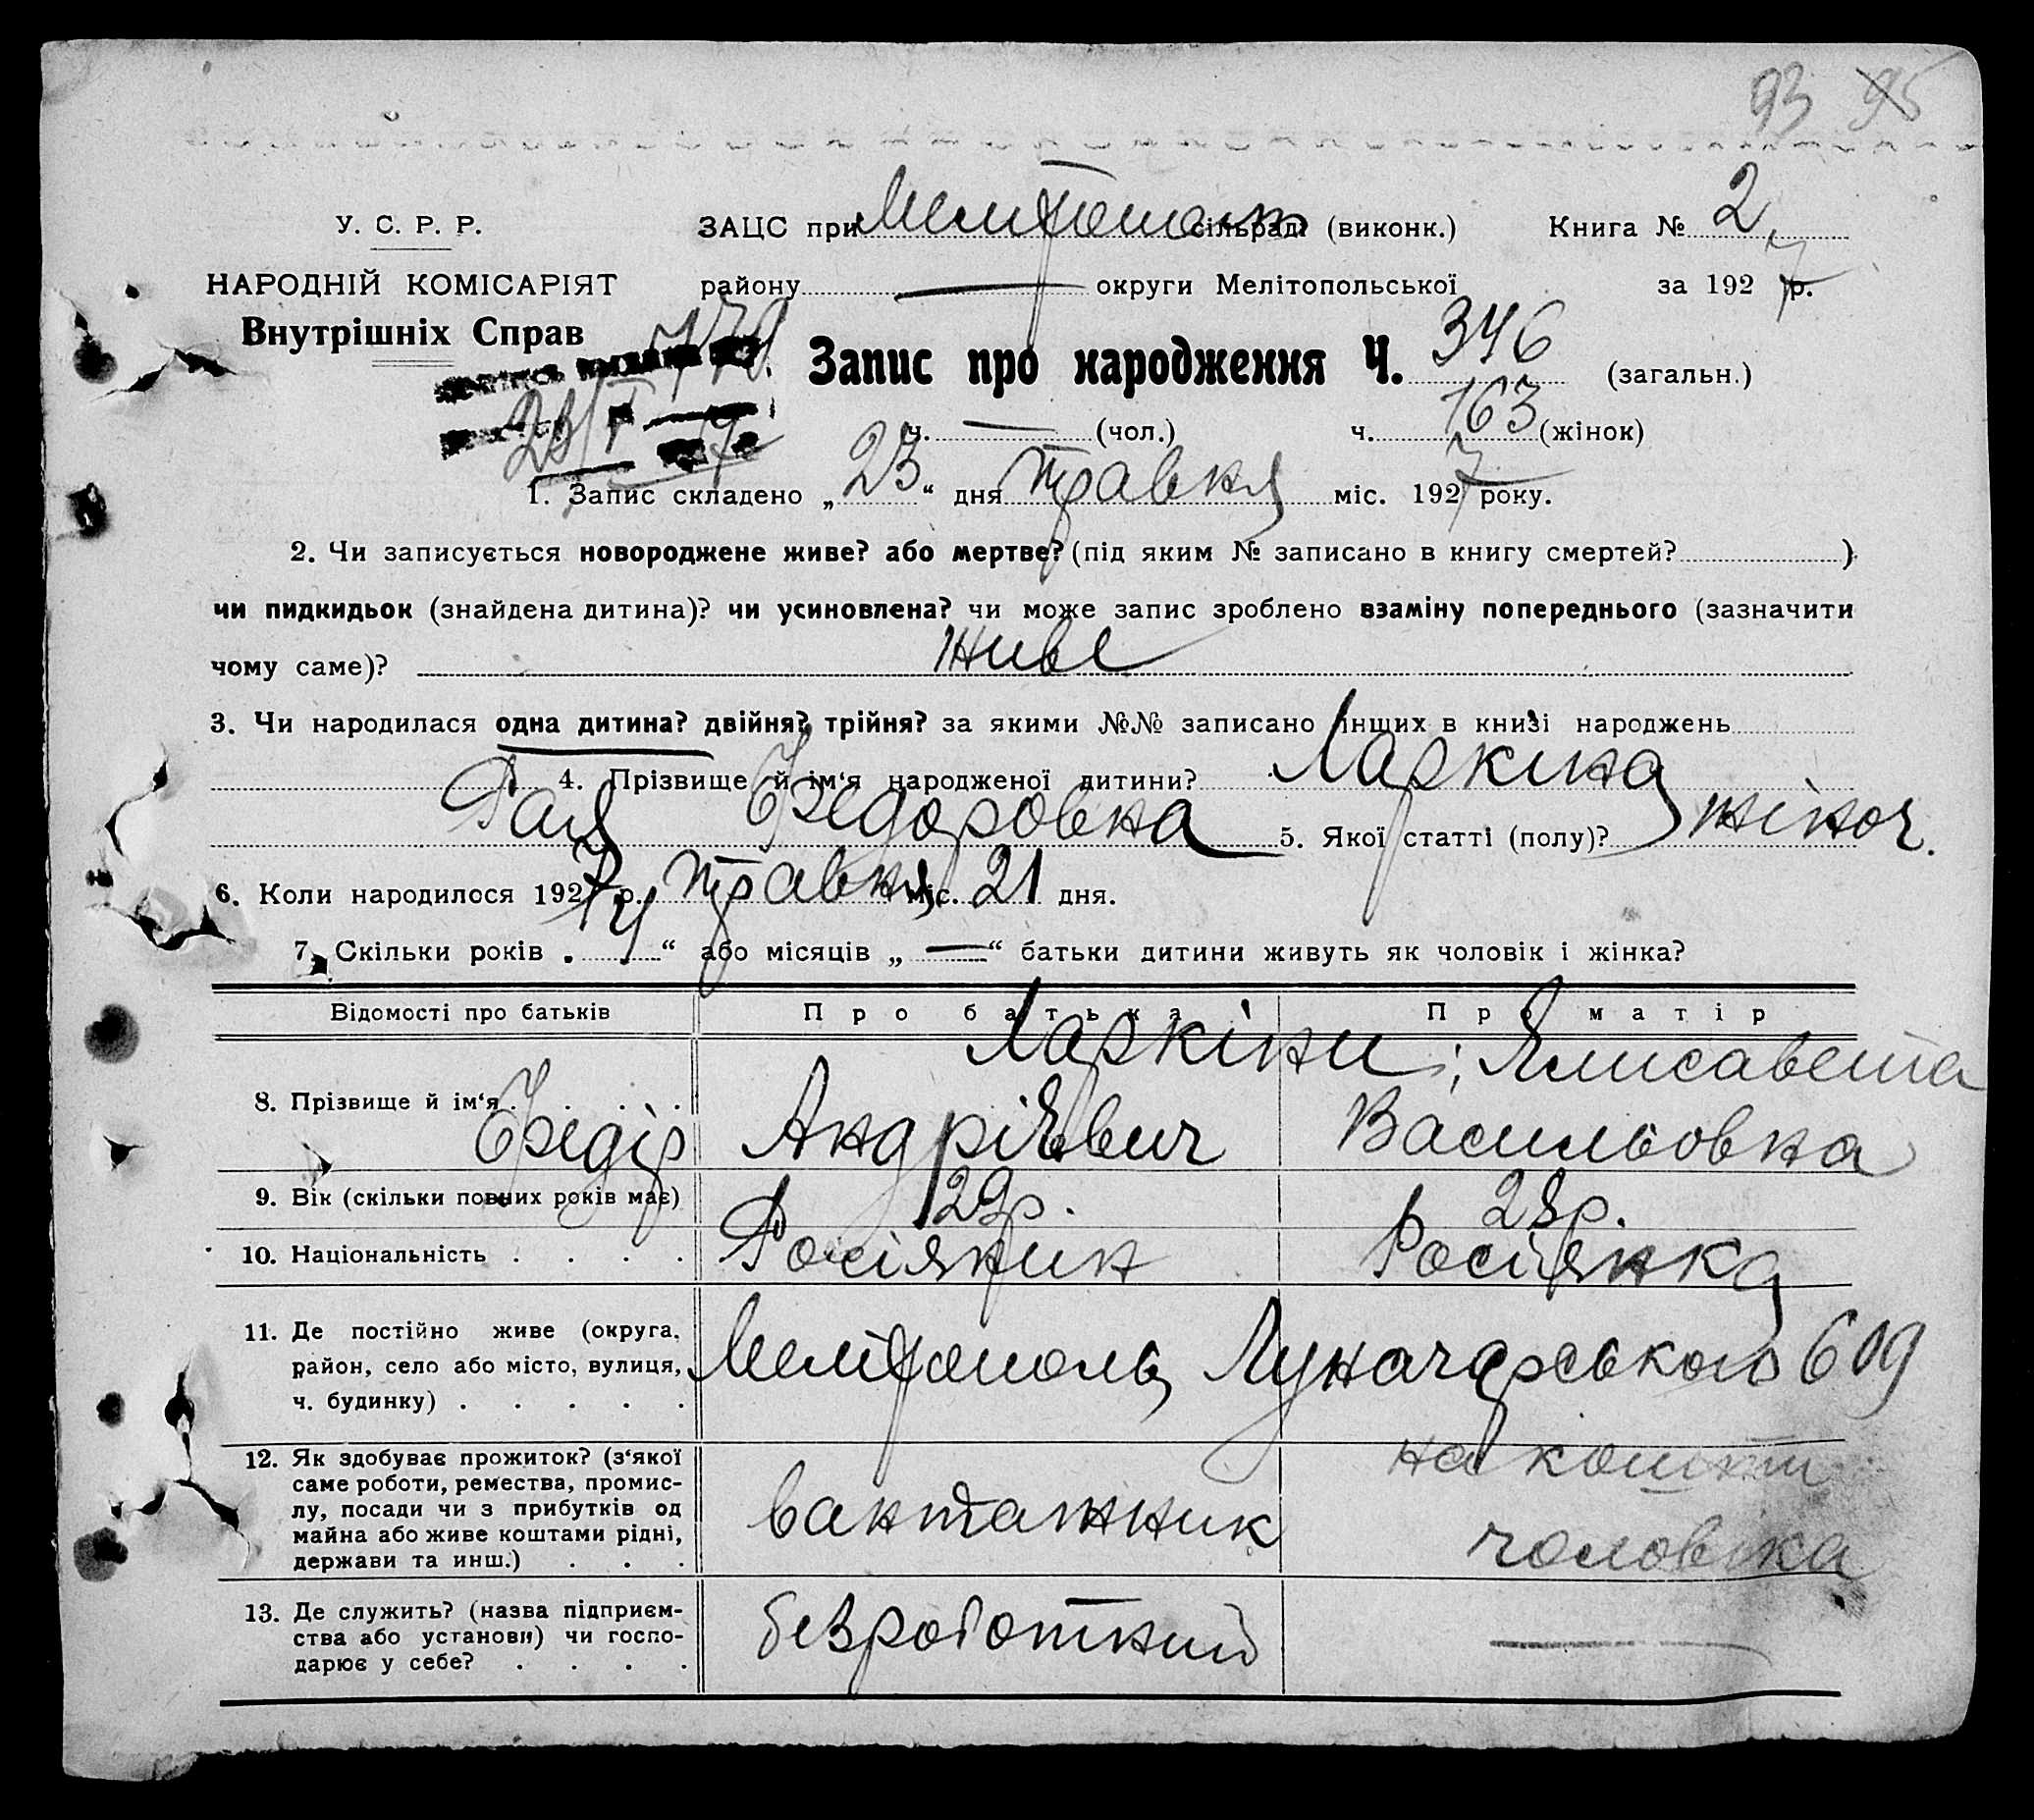 93 95
У. С. Р. Р. ЗАЦС при Мелітополь сільраді (виконк.) Книга № 2
НАРОДНІЙ КОМІСАРІЯТ району — округи Мелітопольської за 1927 р.
Внутрішніх Справ
Запис про народження Ч. 346 (загальн.)
ч. — (чол.) ч. 163 (жінок)
1. Запис складено „23“ дня травня міс. 1927 року.
2. Чи записується новороджене живе? або мертве? (під яким № записано в книгу смертей? )
чи пидкидьок (знайдена дитина)? чи усиновлена? чи може запис зроблено взаміну попереднього (зазначити
чому саме)? живе
3. Чи народилася одна дитина? двійня? трійня? за якими №№ записано інщих в книзі народжень
4. Прізвище й ім‘я народженої дитини? Ларкина
Рая Федоровна 5. Якої статті (полу)? жіноч.
6. Коли народилося 1927 р. травня міс. 21 дня.
7. Скільки років „ 4 “ або місяців „ — “ батьки дитини живуть як чоловік і жінка?
Відомості про батьків Про батька Про матір
Ларкіни; Ялисавета
8. Прізвище й ім‘я . . . . Федір Андріевич Васильовна
9. Вік (скільки повних років має) 29 р. 28 р.
10. Національність . . . . Росіянин Росіянка
11. Де постійно живе (округа,
район, село або місто, вулиця, Мелітополь, Луначарського 609
ч. будинку) . . . . .
12. Як здобуває прожиток? (з‘якої на кошти
саме роботи, ремества, промис-
лу, посади чи з прибутків од вантажник
майна або живе коштами рідні, чоловіка
держави та инш.) . . .
13. Де служить? (назва підприєм-
ства або установи) чи госпо- безроботний —
дарює у себе? . . . .